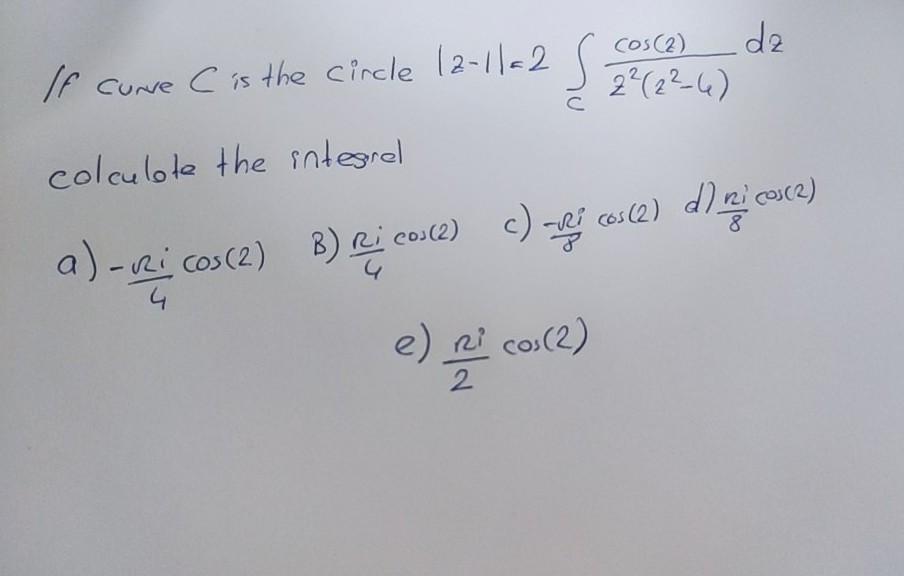 If curve C is the circle |z-1|=2 ∫_C cos(z)/(z²(z²-4)) dz
calculate the integral
a) -πi/4 cos(2) B) πi/4 cos(2) c) -πi/8 cos(2) d) πi/8 cos(2)
e) πi/2 cos(2)